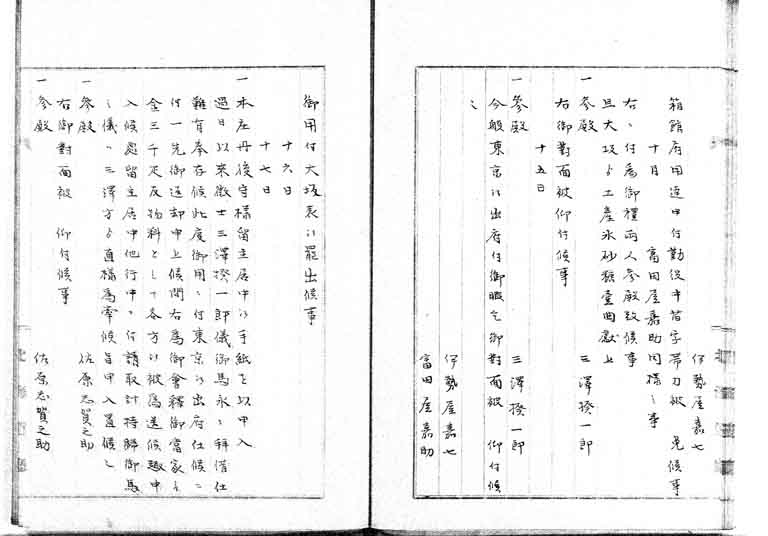 伊勢屋嘉七
箱館府用達申付勤役中苗字帯刀被 免候事
十月 富田屋嘉助同様之事
右ニ付為御禮両人参殿致候事
且大坂ゟ土産氷砂糖壹曲献上
一 参殿 三澤揆一郎
右御對面被仰付候事
十五日
一 参殿 三澤揆一郎
今般東京江出府付御暇乞御對面被 仰付候
伊勢屋嘉七
富田屋嘉助
御用付大坂表江罷出候事
十六日
十七日
一 本庄丹後守様留主居中江手紙を以申入
過日以来徴士三澤揆一郎儀御馬永ニ拝借仕
難有奉存候此度御用ニ付東京江出府仕候ニ
付一先御返却申上候間右為御會釋御當家ゟ
金三千疋反物料として各方江被為遣候趣申
入候處留主居中他行中ニ付請取計持歸御馬
之儀ハ三澤方ゟ直様為牽候旨申入置候
一 参殿 佐原志賀之助
右御對面被 仰付候事
一 参殿 佐原志賀之助